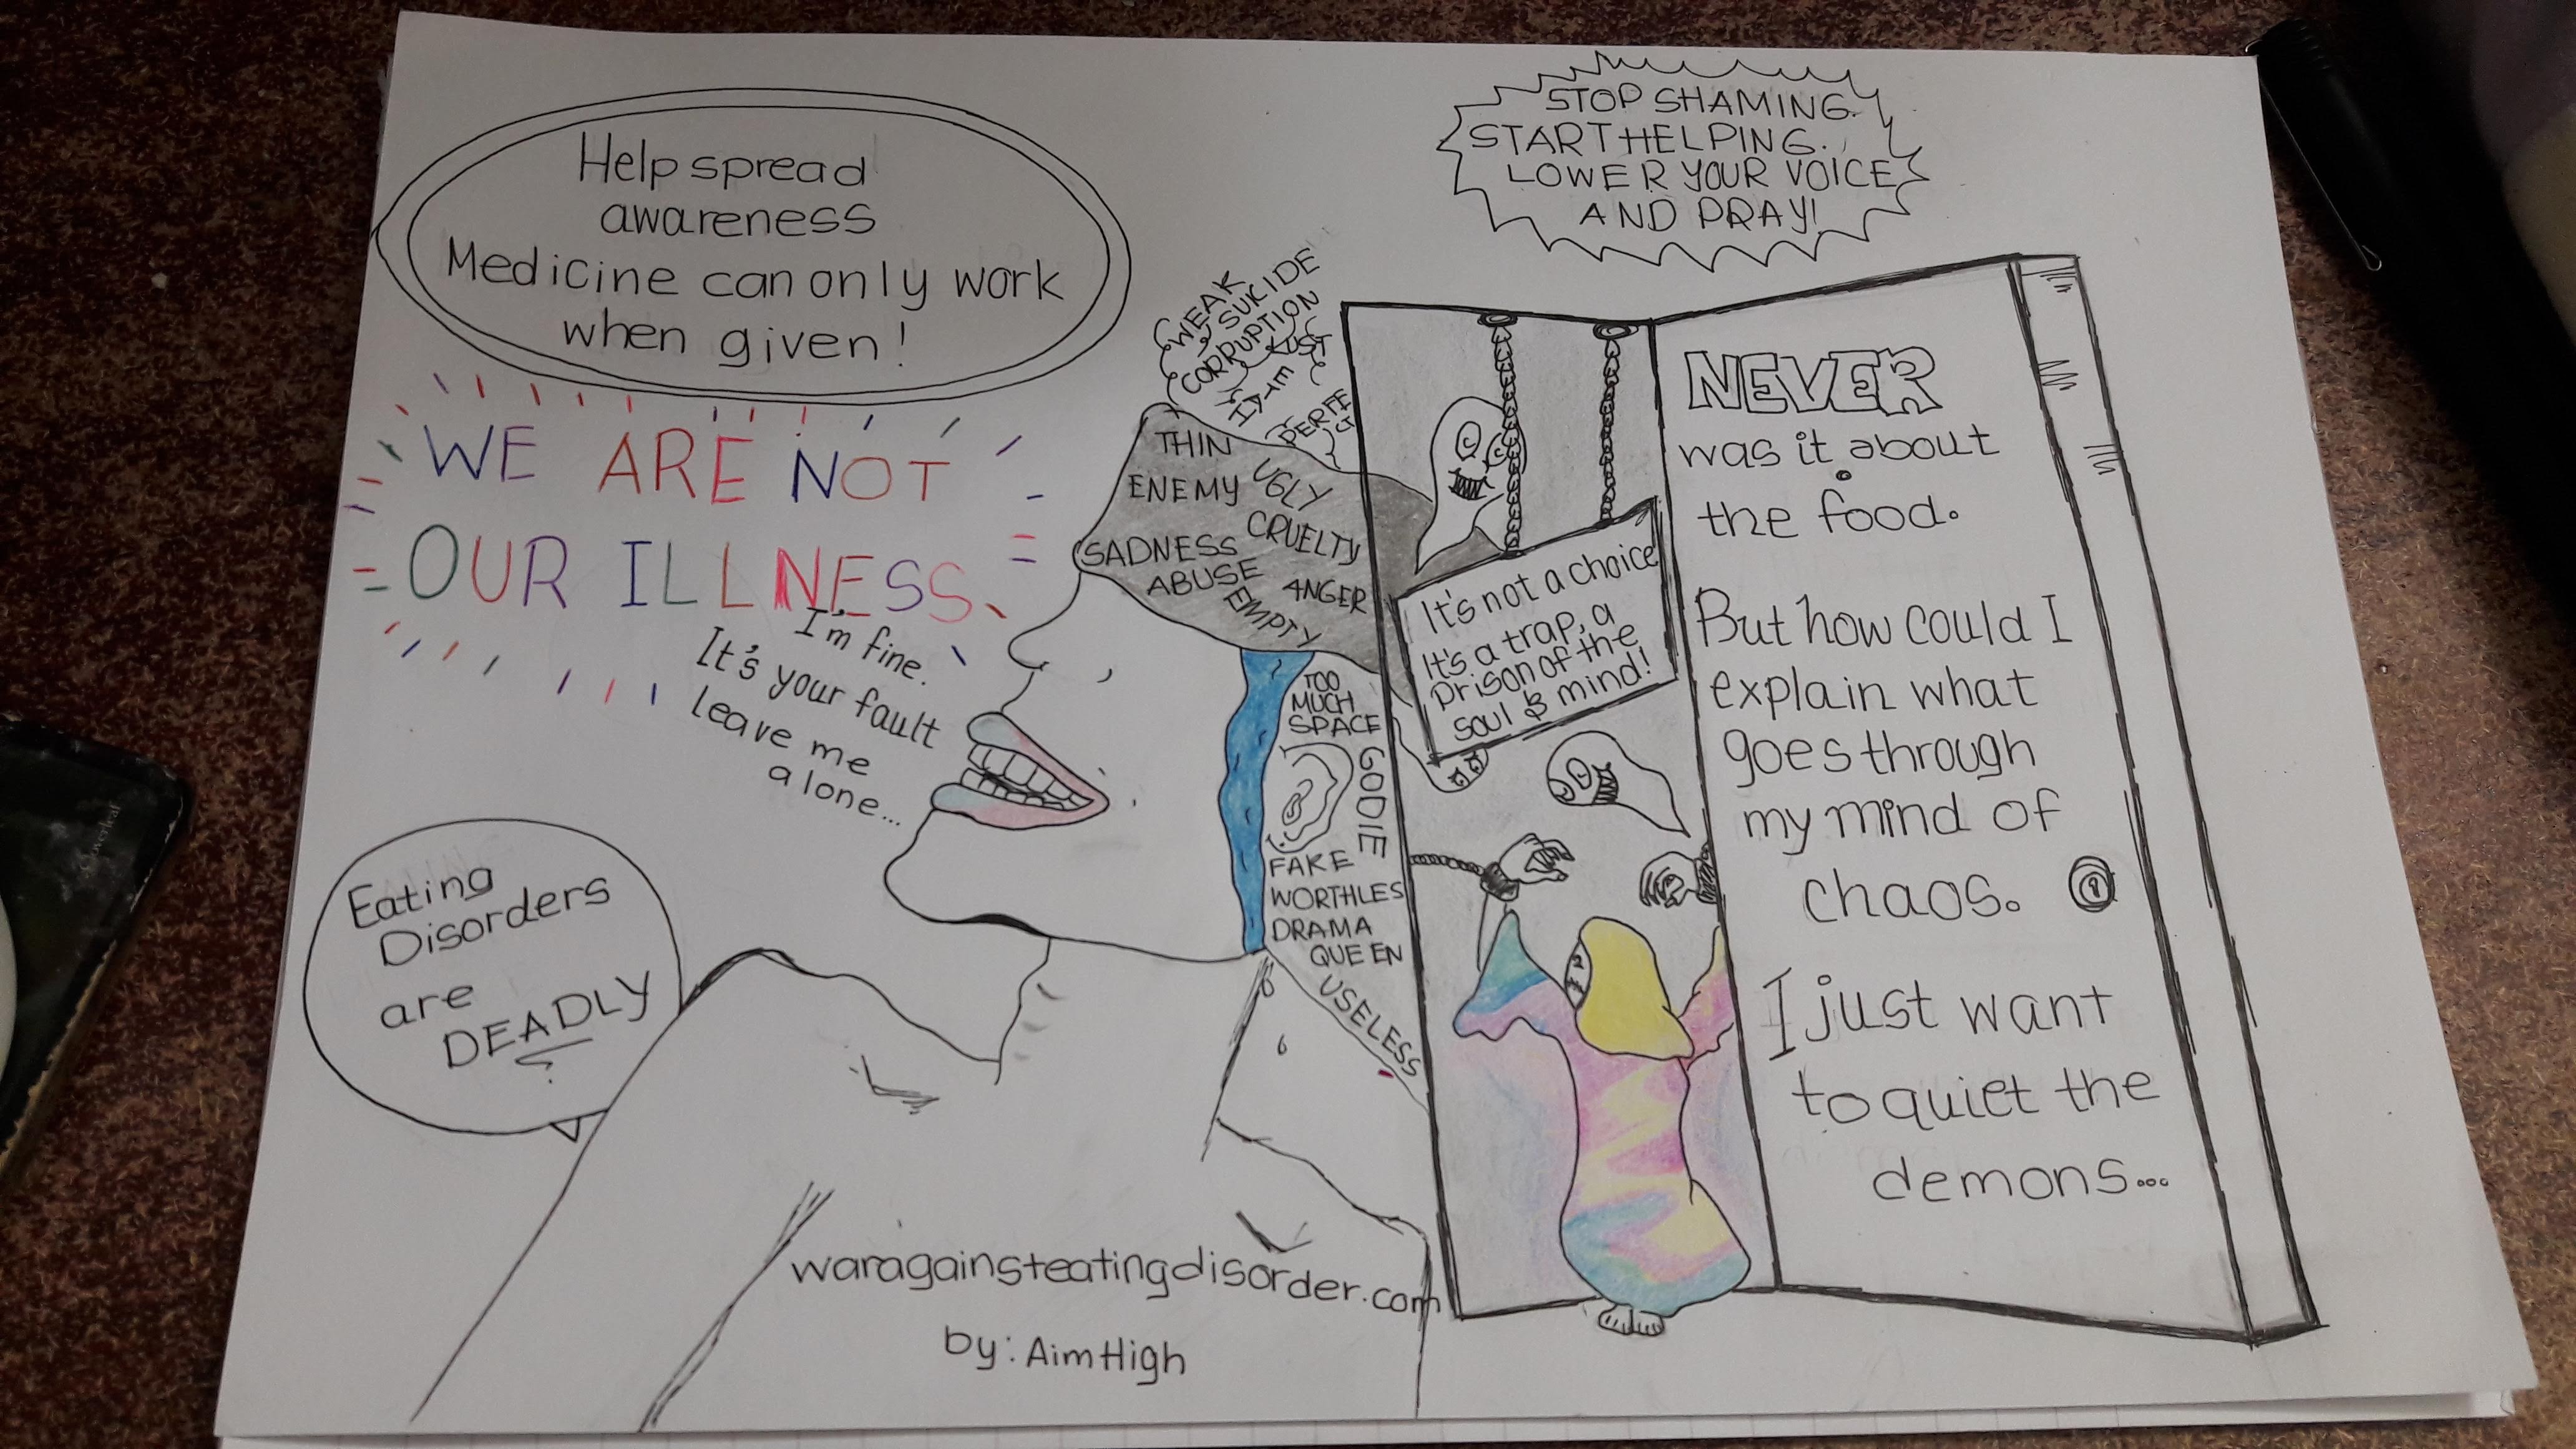 Help spread
awareness
Medicine can only work
when given!
STOP SHAMING.
START HELPING.
LOWER YOUR VOICE
AND PRAY!
WE ARE NOT
OUR ILLNESS.
I'm fine.
It's your fault
leave me
alone...
Eating
Disorders
are
DEADLY
WEAK
SUICIDE
CORRUPTION
LUST
HATE
PERFE
CT
THIN
ENEMY
UGLY
CRUELTY
SADNESS
ABUSE
ANGER
EMPTY
TOO
MUCH
SPACE
GODIE
FAKE
WORTHLES
DRAMA
QUEEN
USELESS
It's not a choice
It's a trap, a
prison of the
soul & mind!
NEVER
was it about
the food.
But how could I
explain what
goes through
my mind of
chaos.
I just want
to quiet the
demons...
waragainsteatingdisorder.com
by: Aim High